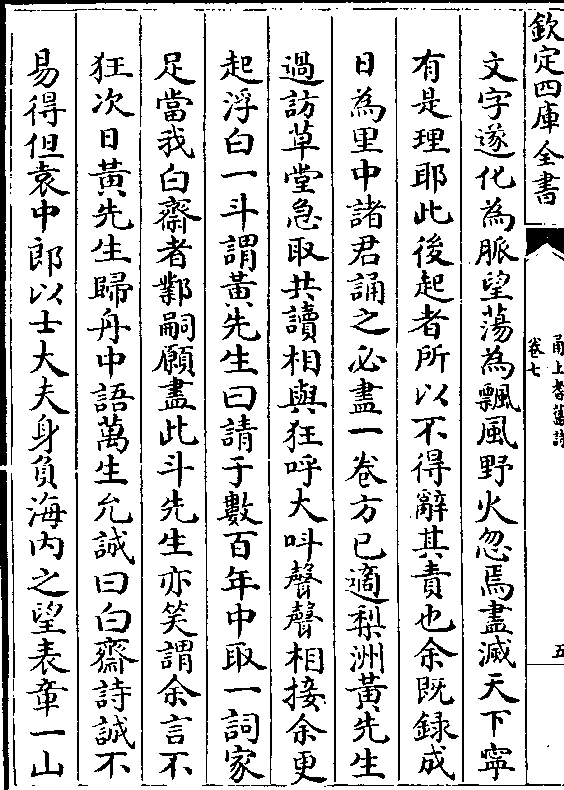 欽定四庫全書
甬上耆舊詩
卷七
五
文字遂化為脈望蕩為飄風野火忽焉盡滅天下寧
有是理耶此後起者所以不得辭其責也余既録成
日為里中諸君誦之必盡一卷方已適梨洲黃先生
過訪草堂急取共讀相與狂呼大呌聲聲相接余更
起浮白一斗謂黃先生曰請于數百年中取一詞家
足當我白齋者鄴嗣願盡此斗先生亦笑謂余言不
狂次日黃先生歸舟中語萬生允誠曰白齋詩誠不
易得但袁中郎以士大夫身負海内之望表章一山